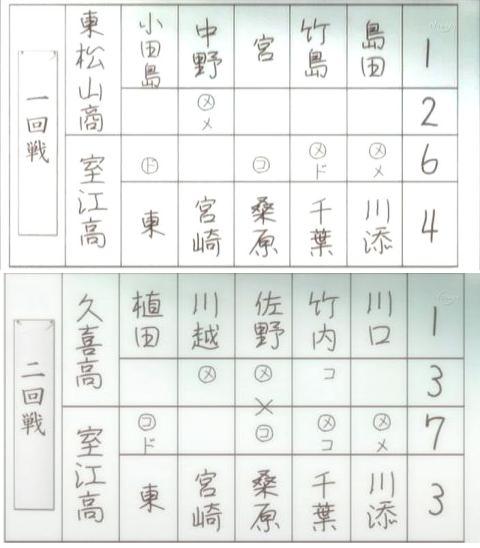 一回戦
東松山商 小田島 中野 宮 竹島 島田 1
㋱ メ 2
室江高 ㋣ ㋙ ㋱ ド ㋱ メ 6
東 宮崎 桑原 千葉 川添 4
二回戦
久喜高 植田 川越 佐野 竹内 川口 1
㋱ ㋱ コ 3
×
室江高 ㋙ ド ㋙ ㋱ コ ㋱ メ 7
東 宮崎 桑原 千葉 川添 3